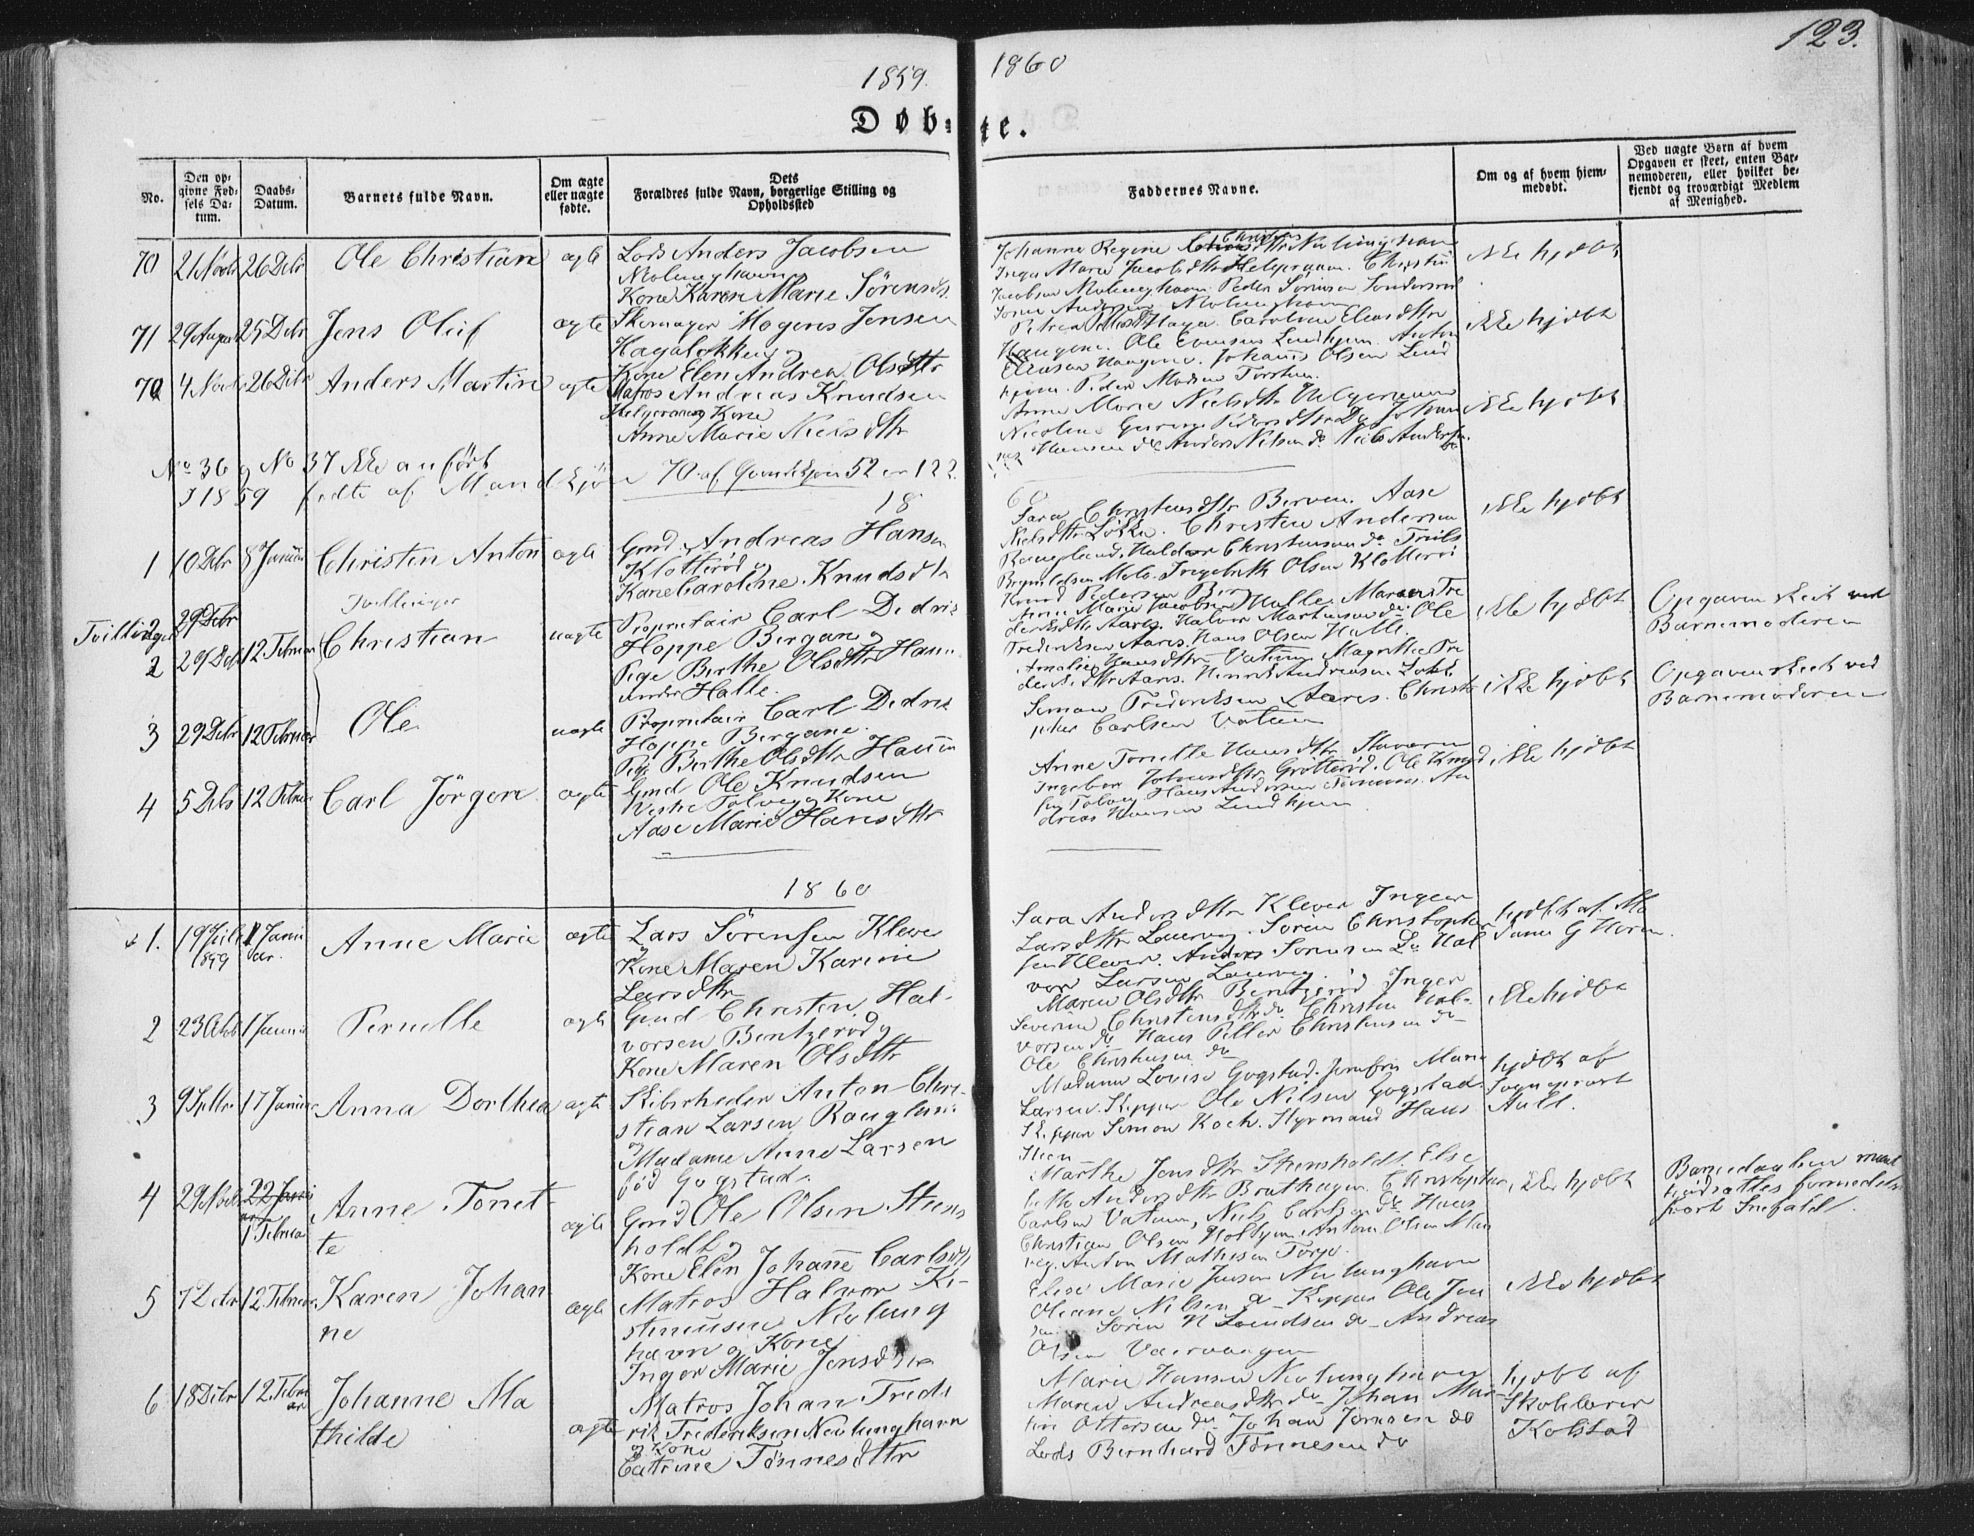 123.
1859.
1860
Døbte.
No.
Den opgivne Fødsels Datum.
Daabs-Datum.
Barnets fulde Navn.
Om ægte eller uægte fødte.
Dets Forældres fulde Navn, borgerlige Stilling og Opholdssted
Faddernes Navne.
Om og af hvem hjemmedøbt.
Ved uægte Børn af hvem Opgaven er skeet, enten Barnemoderen, eller hvilket bekjendt og troværdigt Medlem af Menighed.
70 21 Novbr 26 Debr Ole Christian ægte
Lods Anders Jacobsen
Nevlunghavn og
Kone Karen Marie Sörensdtr
Johanne Regine Nevlunghavn
Inger Marie Jacobsdtr Helgeraaen. Christian
Jacobsen Nevlunghavn. Peder Sörensen
Sören Andersen Nevlunghavn
ikke hjdöbt
71 29 August 25 Debr Jens Oluf ægte
Skomager Mogens Jensen
Hagalökken og
Kone Elen Andrea Olsdtr
Haugene. Ole Lindhjem. Anton
Eliasen Haugene. Johannes Olsen Lind
hjem. Peder Madsen
ikke hjdöbt
72 4 Novbr 26 Debr Anders Martin ægte
Matros Andreas Knudsen
Helgeraaen og Kone
Anne Marie Nielsdtr
Anne Marie Nielsdtr Helgeraaen
Nicoline Pedersdtr Do Johan
Hansen do Anders Nilsen do Niels Andersen
do
ikke hjdöbt
No 36 og No 37 ikke anfört
I 1859 fødte af Mandkjön 70 af Qvindekjön 52 = 122
18
60
1 10 Debr 8 Januar Christen Anton ægte
Gmd Andreas Hansen
Klotteröd og
Kone Caroline Knudsdtr
Sara Christensdtr Berven. Aase
Nielsdtr Løkke. Christen Andersen
Rougland. Haldor Christensen do Truls
Brynildsen Melo. Ingebreth Olsen Klotteröd
Knud Pedersen Berg
ikke hjdöbt
Tvillinger
Tvillinger
2 29 Debr
2 29 Debr 12 Februar Christian uægte
Proprietair Carl Didrik
Hoppe Bergane og
Pige Birthe Olsdtr Haun
under Halle.
Anne Marie Jacobsen Halle. Maren Fre
deriksdtr Aarös. Halvor Martinsen do Ole
Frederiksen Aarös. Hans Olsen Halle.
ikke hjdöbt
Opgaven skeet ved
Barnemoderen
3 29 Debr 12 Februar Ole uægte
Proprietair Carl Didrik
Hoppe Bergane.
Pige Birthe Olsdtr Haun
Amalie Hansdtr Vatum Magrethe Fre
deriksdtr Aarös. Henrik Andreasen
Simon Frederiksen Aarös. Christo
pher Carlsen Vatum
ikke hjdöbt
Opgaven skeet ved
Barnemoderen
4 5 Debr 12 Februar Carl Jörgen ægte
Gmd Ole Knudsen
Vestre Tolvey og Kone
Aase Marie Hansdtr
Anne Tonette Hansdtr Stavern
Ingebor Grötteröd. Ole Knud
sen Tolvey. Hans Andersen An
dreas Hansen Lindhjem.
ikke hjdöbt
1860
1. 19 Juli 1859 1 Janu
ar. Anne Marie ægte
Lars Sörensen Klever
Kone Maren Karine
Larsdtr
Sara Andersdtr Klever Inger
Larsdtr Laurvig. Sören Christopher
sen Klever. Anders Sörensen Do Hal
vor Larsen Laurvig.
hjdöbt af Ma
dame G Horn.
2 23 Octbr 1 Januar Pernille ægte
Gmd Christen Hal-
vorsen Bentzeröd og
Kone Maren Olsdtr
Maren Olsdtr Bentzeröd Inger
Severine Christensdtr do. Christen Hal-
vorsen do Hans Petter Christensen do
Ole Christensen do
ikke hjdöbt
3 9 Septbr 17 Januar Anna Dorthea ægte
Skibsrheder Anton Chri-
stian Larsen Rougland
og
Madame Anne Larsen
föd Gogstad.
Madame Lovise Gogstad. Jomfru Marie
Larsen. Skipper Ole Nilsen Gogstad.
Skipper Simon Koch. Styrmand Hans
Steen
hjdöbt af
Sogneprest
Ault.
4 29 22 Janu
ar
1 Februar Anne Tonet-
te ægte
Gmd Ole Olsen Stens
holdt og
Kone Elen Johanne Carlsdtr
Marthe Jensdtr Stensholdt Else
beth Andersdtr Brathagen. Christopher
Carlsen Vatum, Niels Carlsen do Hans
Christian Olsen Holtjem. Anton Olsen
Anton Mathisen Torp.
ikke hjdöbt
Barnedaaben maat
udsættes formedelst
stort Snefald
5 7 Debr 12 Februar Karen Johan
ne ægte
Matros Halvor Ki-
stensen Nevlung
havn og Kone
Inger Marie Jensdtr
Elise Marie Jensen Nevlunghavn
Oleane Nilsen do Skipper Ole Jen
sen Sören N Svendsen do Andreas
Olsen
ikke hjdöbt
6 18 Debr 12 Febru
ar Johanne Ma
thilde ægte
Matros Johan Frede
rik Frederiksen Nevlunghavn
og Kone
Cathrine Tönnesdtr
Marie Hansen Nevlunghavn
Maren Andreasdtr do Johan Mar-
tin Ottersen do Johan Jensen do
Lods Bernhard Tönnesen do
hjdöbt af
Skolelærer
Kolstad